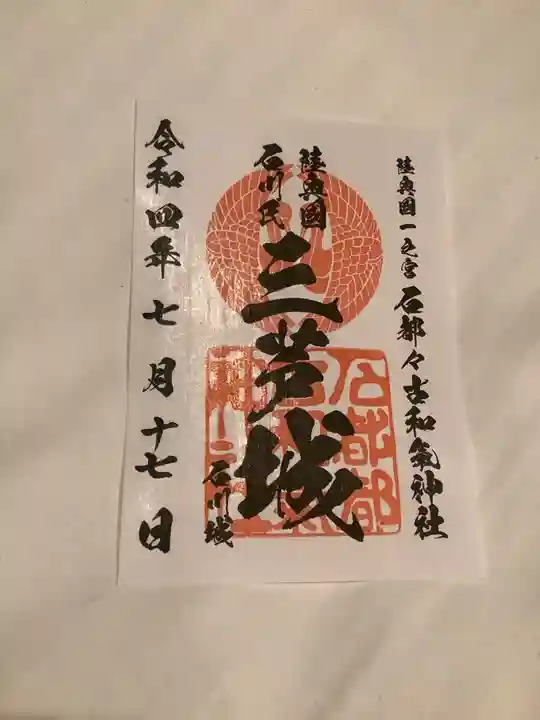 陸奥國一之宮 石都々古和氣神社
陸奥國
石川氏
三芦城
石川城
令和四年 七月 十七日
石都都